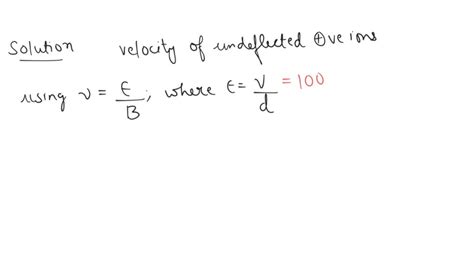 Solution velocity of undeflected ⊕ve ions
using v = E/B, where E = V/d = 100